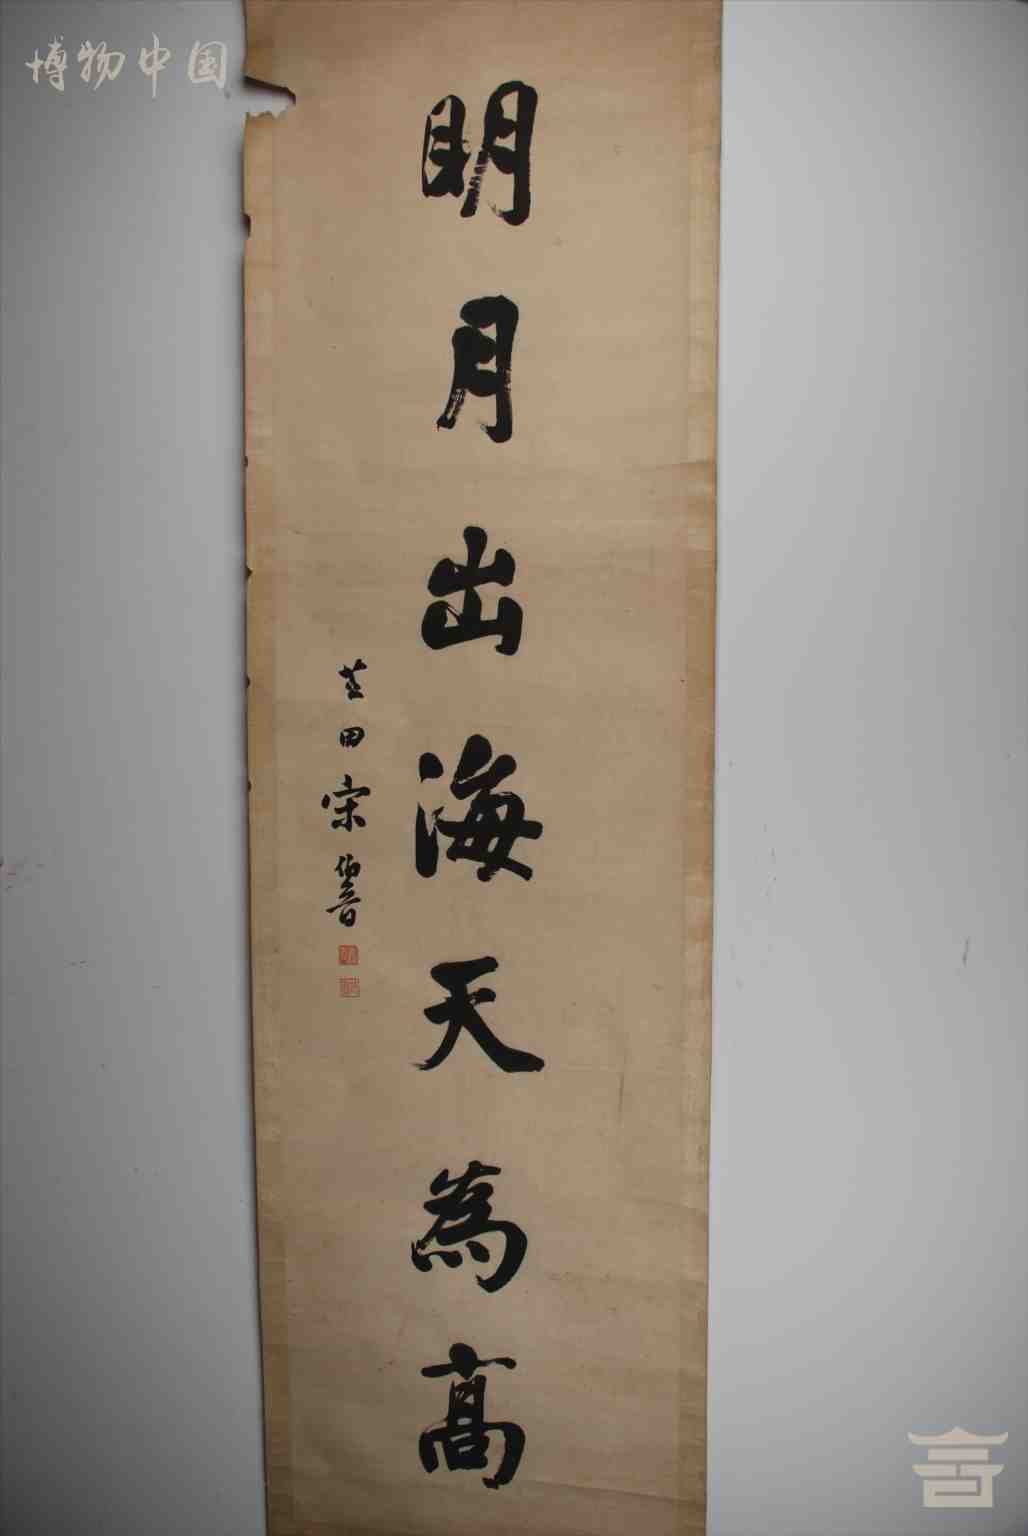 博物中国
明月出海天為高
芝田宋伯魯